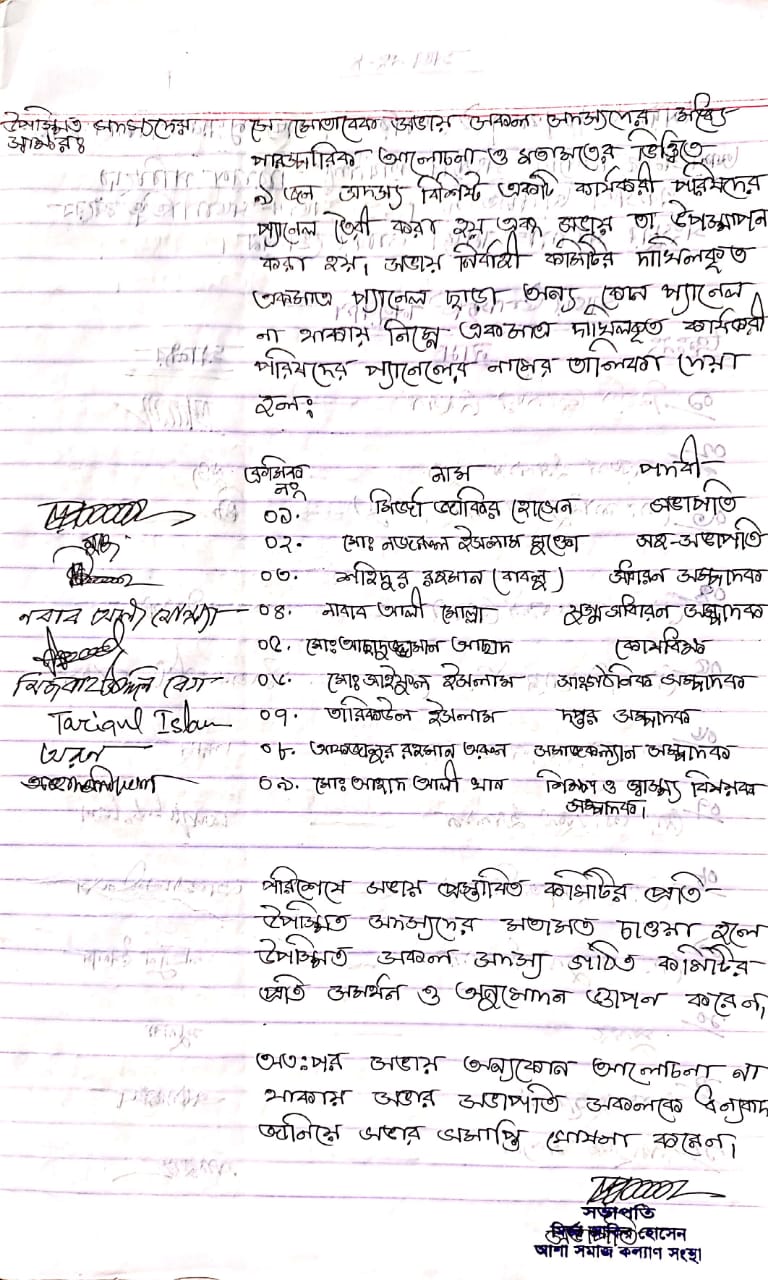 উপস্থিত সদস্যদের
স্বাক্ষরঃ
সে মোতাবেক সভায় সকল সদস্যদের মধ্যে
পারস্পারিক আলোচনা ও মতামতের ভিত্তিতে
৯ জন সদস্য বিশিষ্ট একটি কার্যকরী পরিষদের
প্যানেল তৈরী করা হয় এবং সভায় তা উপস্থাপন
করা হয়। সভায় নির্বাহী কমিটির দাখিলকৃত
একমাত্র প্যানেল ছাড়া অন্য কোন প্যানেল
না থাকায় নিম্নে একমাত্র দাখিলকৃত কার্যকরী
পরিষদের প্যানেলের নামের তালিকা দেয়া
হলঃ
ক্রমিক নাম পদবী
নং
০১. মির্জা জাকির হোসেন সভাপতি
০২. মোঃ নজরুল ইসলাম মুক্তো সহ-সভাপতি
০৩. শহিদুর রহমান (বাবলু) সাধারন সম্পাদক
নবাব আলী মোল্যা ০৪. নবাব আলী মোল্লা যুগ্মসাধারন সম্পাদক
০৫. মোঃ আছাদুজ্জামান আছাদ কোষাধক্ষ
০৬. মোঃ সাইফুল ইসলাম সাংগঠনিক সম্পাদক
Tariqul Islam ০৭. তারিকউল ইসলাম দপ্তর সম্পাদক
০৮. রহমান তরুন সমাজকল্যান সম্পাদক
০৯. মোঃ আহাদ আলী খান শিক্ষা ও স্বাস্থ্য বিষয়ক
সম্পাদক।
পরিশেষে সভায় প্রস্তাবিত কমিটির প্রতি
উপস্থিত সদস্যদের মতামত চাওয়া হলে
উপস্থিত সকল সদস্য গঠিত কমিটির
প্রতি সমর্থন ও অনুমোদন জ্ঞাপন করেন।
অতঃপর সভায় অন্যকোন আলোচনা না
থাকায় সভার সভাপতি সকলকে ধন্যবাদ
জানিয়ে সভার সমাপ্তি ঘোষনা করেন।
সভাপতি
হোসেন
আশা সমাজ কল্যাণ সংস্থা